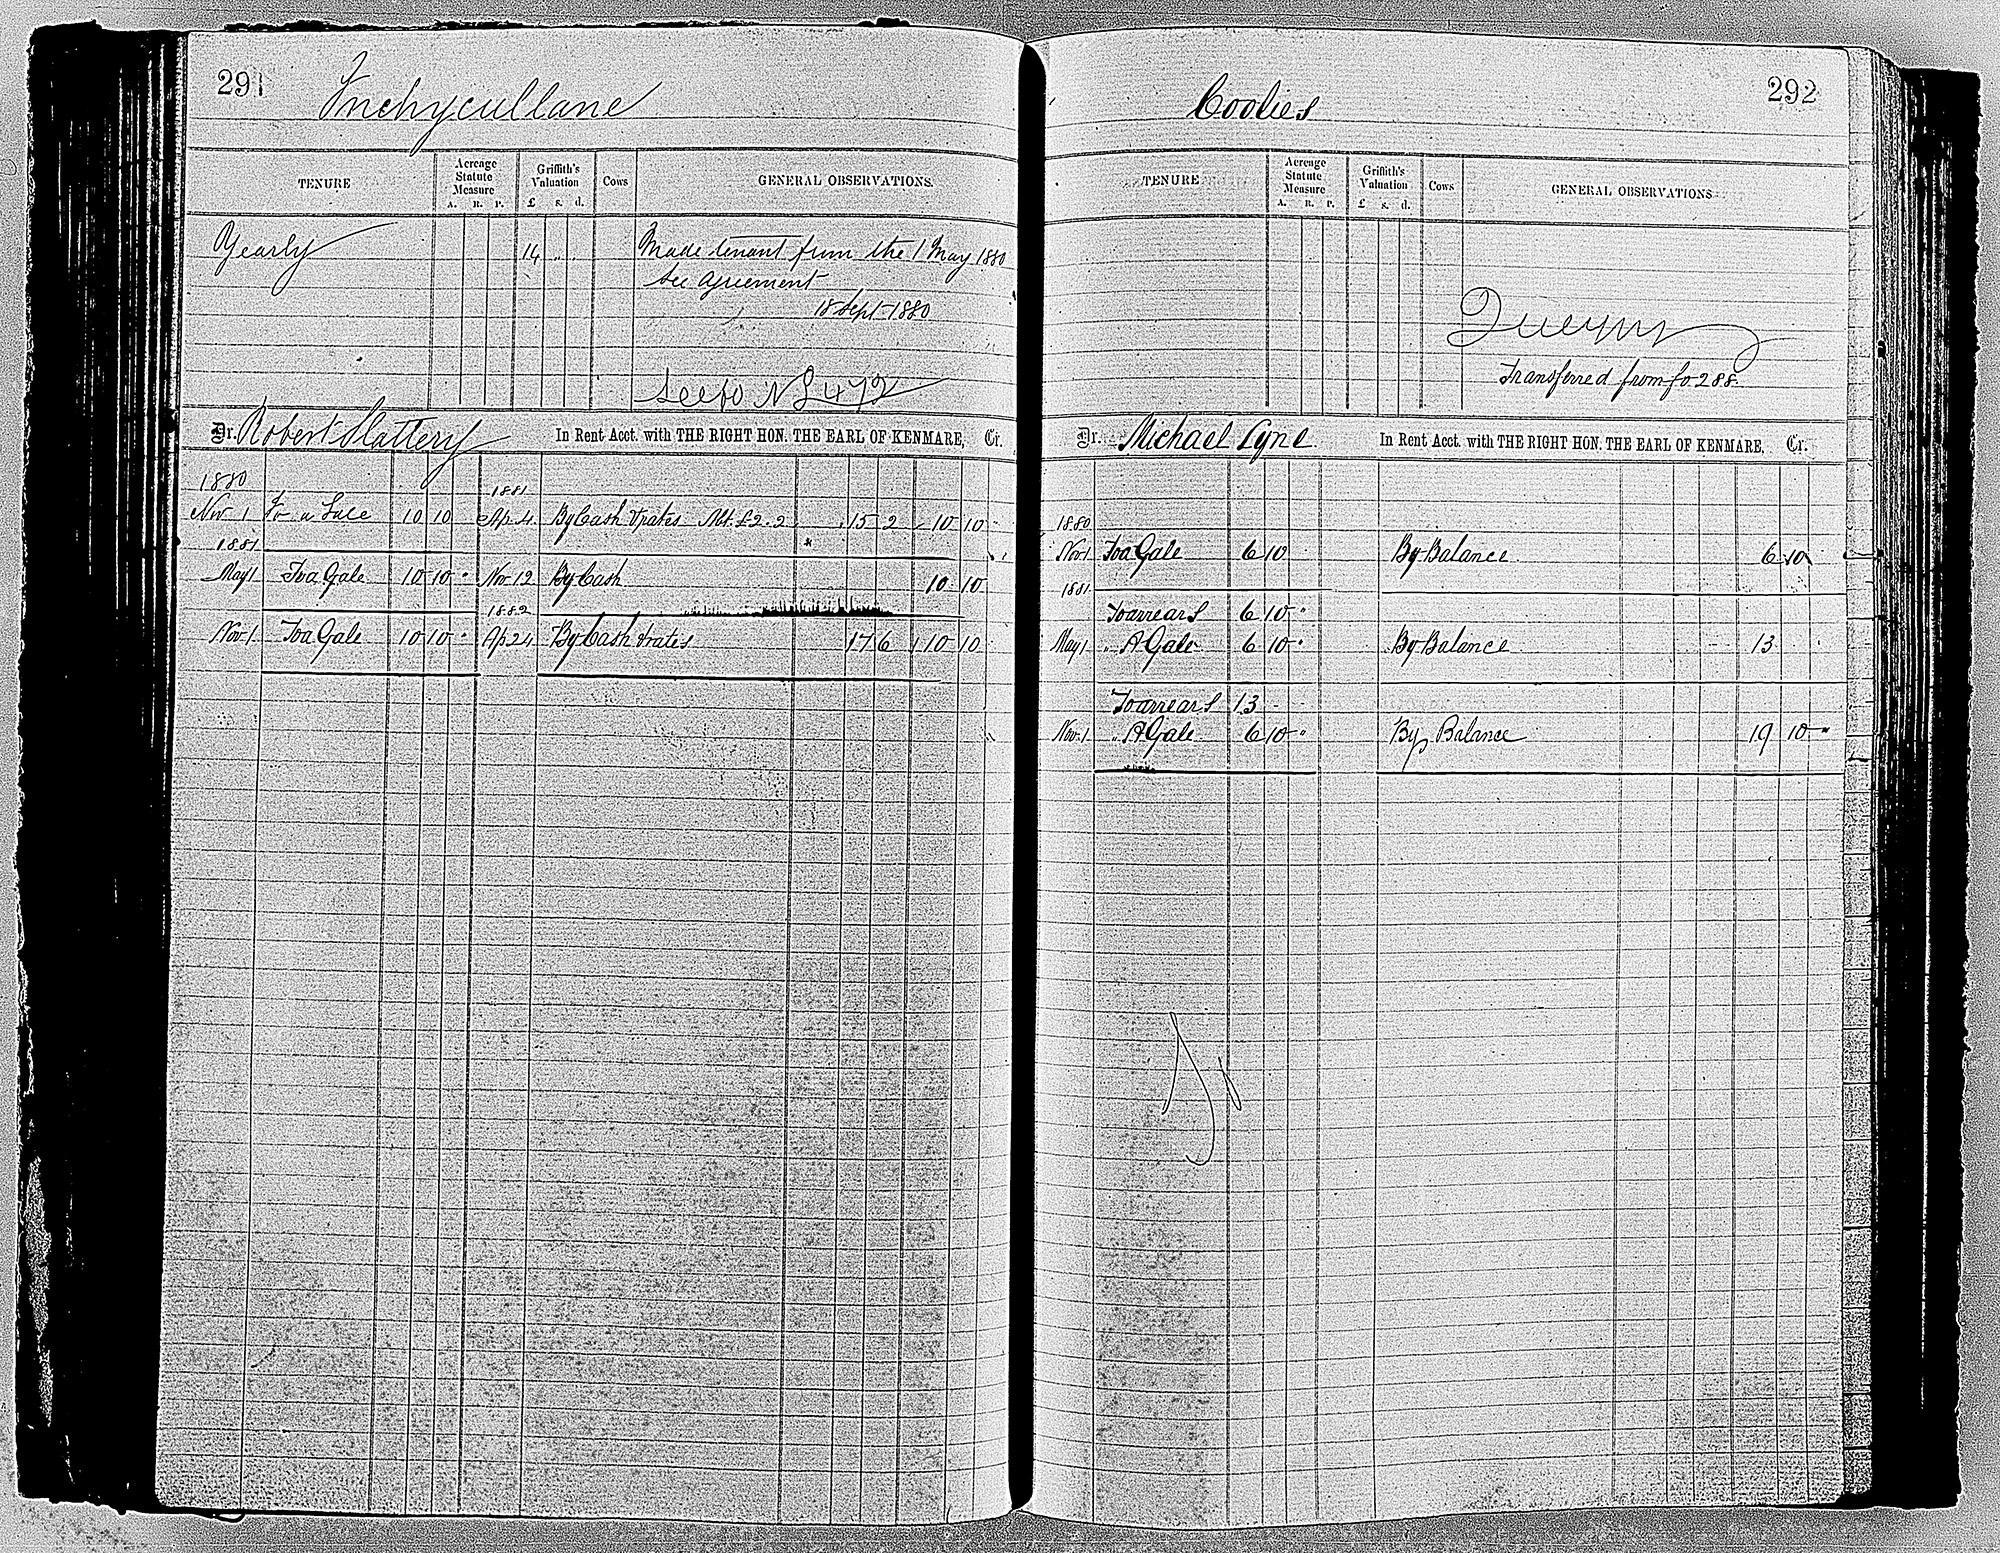 291
Inchycullane
TENURE
Acreage Statute Measure
A. R. P.
Griffith's Valuation
£ s. d.
Cows
GENERAL OBSERVATIONS.
Yearly 14 " Made tenant from the 1 May 1880
See agreement
18 Sept 1880
See fo N S 472
Dr. Robert Slattery In Rent Acct. with THE RIGHT HON. THE EARL OF KENMARE, Cr.
1880 1881
Nov 1 To a Gale 10 10 Ap 4 By Cash & rates Alt. £2.2 15 2 10 10
1881
May 1 To a Gale 10 10 " Nov 12 By Cash 10 10
1882
Nov 1 To a Gale 10 10 " Ap 24 By Cash & rates 17 6 10 10
292
Coolies
TENURE
Acreage Statute Measure
A. R. P.
Griffith's Valuation
£ s. d.
Cows
GENERAL OBSERVATIONS
Transferred from fo 288
Dr. Michael Lyne In Rent Acct. with THE RIGHT HON. THE EARL OF KENMARE, Cr.
1880
Nov 1 To a Gale 6 10 By Balance 6 10
1881
To arrears 6 10 "
May 1 " A Gale 6 10 " By Balance 13
To arrears 13
Nov 1 " A Gale 6 10 " By Balance 19 10 "